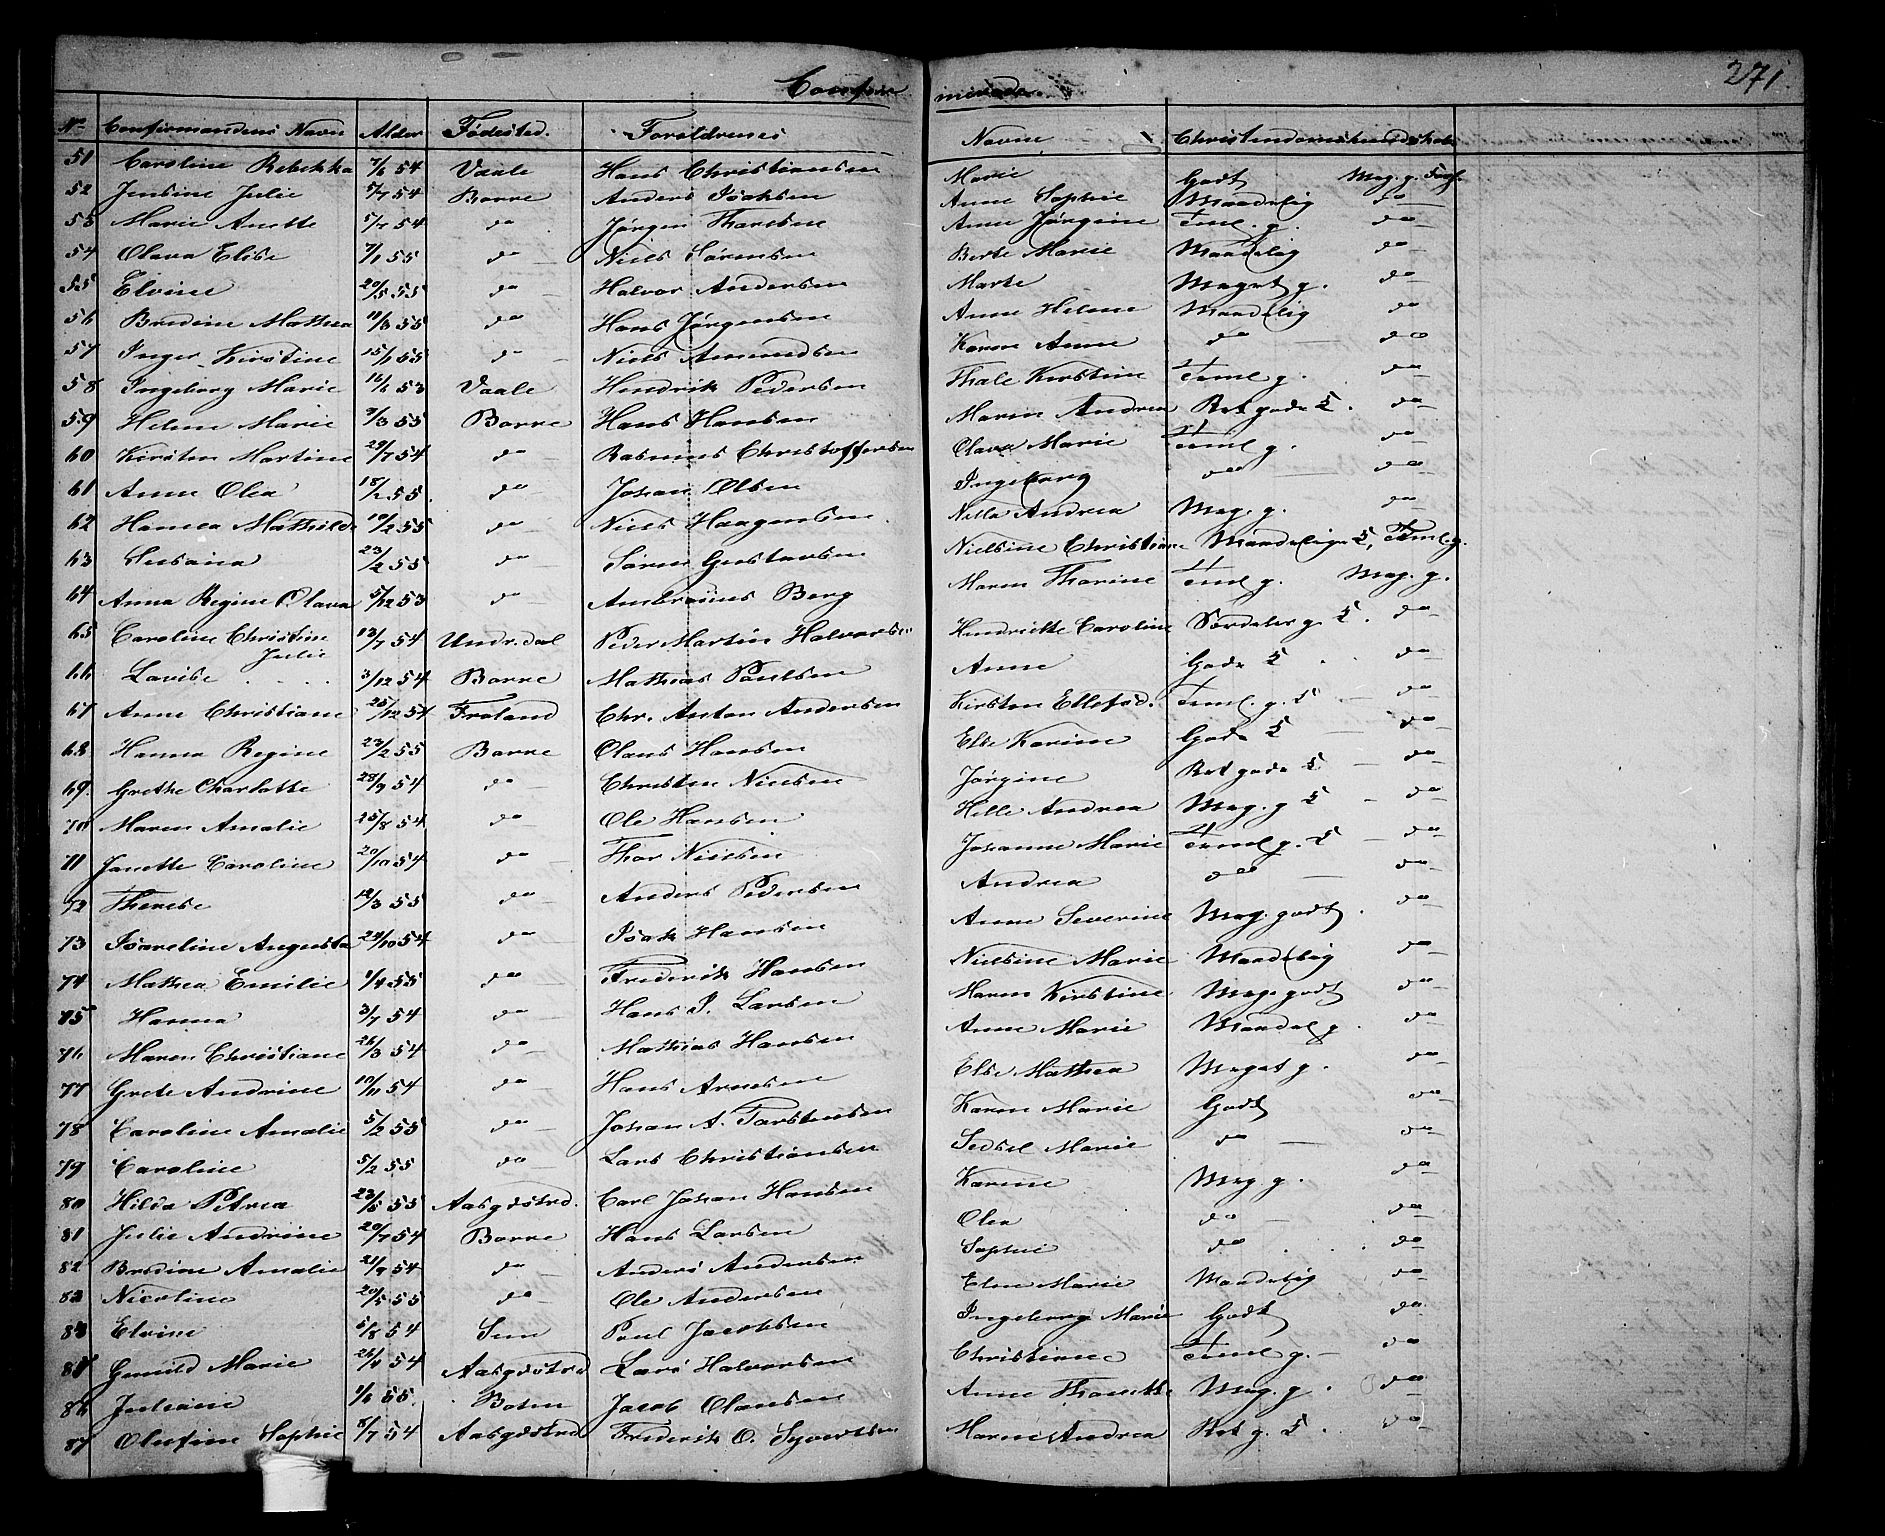 Confir mirede. 271.
No Confirmandens Navn Alder Fødested. Forældrenes Navne Christendomskundskab
51 Caroline Rebekka 7/6 54 Vaale Hans Christiansen Marie Godt Meg. g. Forh.
52 Jensine Julie 5/7 54 Borre Anders Isaksen Anne Sophie Maadelig do
53 Marie Anette 5/7 54 do Jørgen Thorsen Anne Jørgine Teml. g. do
54 Olava Elise 7/1 55 do Niels Sørensen Berte Marie Maadelig do
55 Elvine 20/5 55 do Halvor Andersen Marte Meget g. do
56 Bredine Mathea 11/3 55 do Hans Jørgensen Anne Helene Maadelig do
57 Inger Kirstine 15/1 55 do Niels Amundsen Karen Anne do do
58 Ingeborg Marie 16/2 53 Vaale Hendrik Pedersen Thale Kirstine Teml g. do
59 Helene Marie 3/3 55 Borre Hans Hansen Maren Andrea Ret gode K. do
60 Kirsten Martine 29/7 54 do Rasmus Christoffersen Olava Marie Teml g. do
61 Anne Olea 18/2 55 do Johan Olsen Ingeborg do do
62 Hanna Mathilde 10/2 55 do Niels Haagensen Nilla Andrea Meg. g. do
63 Susana 23/2 55 do Søren Gustavsen Nielsine Christiane Maadelige K, Teml. g.
64 Anna Regine Olava 5/12 53 do Ambrosius Berg Maren Thorine Teml g. Meg. g.
65 Caroline Christine Julie 13/7 54 Undr.dal Peder Martin Halvorsen Hendrikke Caroline Særdeles g. K. do
66 Lovise 3/12 54 Borre Mathias Poulsen Anne Gode K do
67 Anne Christiane 25/12 54 Froland Chr. Anton Andersen Kirsten Ellefsd. Teml. g. K do
68 Hanna Regine 23/2 55 Borre Olaus Hansen Else Karine Gode K do
69. Grethe Charlotte 28/9 54 do Christen Nielsen Jørgine Ret gode K do
70 Maren Amalie 25/8 54 do Ole Hansen Helle Andrea Meg. g K do
71 Janette Caroline 20/10 54 do Thor Nielsen Johanne Marie Teml g. K do
72 Therese 12/3 55 do Anders Pedersen Andrea do do
73 Isaveline Augusta 29/10 54 do Isak Hansen Anne Severine Meg. godt. do
74 Mathea Emilie 1/4 55 do Frederik Hansen Nielsine Marie Maadelig do
75 Hanna 3/7 54 do Hans P. Larsen Maren Kirstine Meg. godt do
76 Maren Christiane 26/3 54 do Mathias Hansen Anne Marie Maadel g. do
77 Grete Andrine 10/11 54 do Hans Arnesen Else Mathea Meget g. do
78 Caroline Amalie 5/2 55 do Johan A. Torstensen Karen Marie Godt do
79 Caroline 5/2 55 do Lars Christiansen Sedsel Marie do do
80 Hilda Petrea 23/5 55 Aasgdstrd. Carl Johan Hansen Karine Meg. g. do
81 Julie Andrine 20/7 54 Borre Hans Larsen Olea do do
82 Bredine Amalie 21/9 54 do Anders Andersen Sophie do do
83 Nicoline 20/5 55 do Ole Andersen Elen Marie Maadelig do
84 Elvine 5/8 54 Sem Poul Jacobsen Ingeborg Marie Godt do
85 Gunild Marie 26/4 54 Aasgdstrd Lars Halvorsen Christiane Teml g. do
86 Juliane 1/2 55. Botne Jacob Olausen Anne Thorine Meg. g. do
87 Olufine Sophie 8/7 54 Aasgdstrd Frederik O. Syvertsen Maren Andrea Ret g. K. do